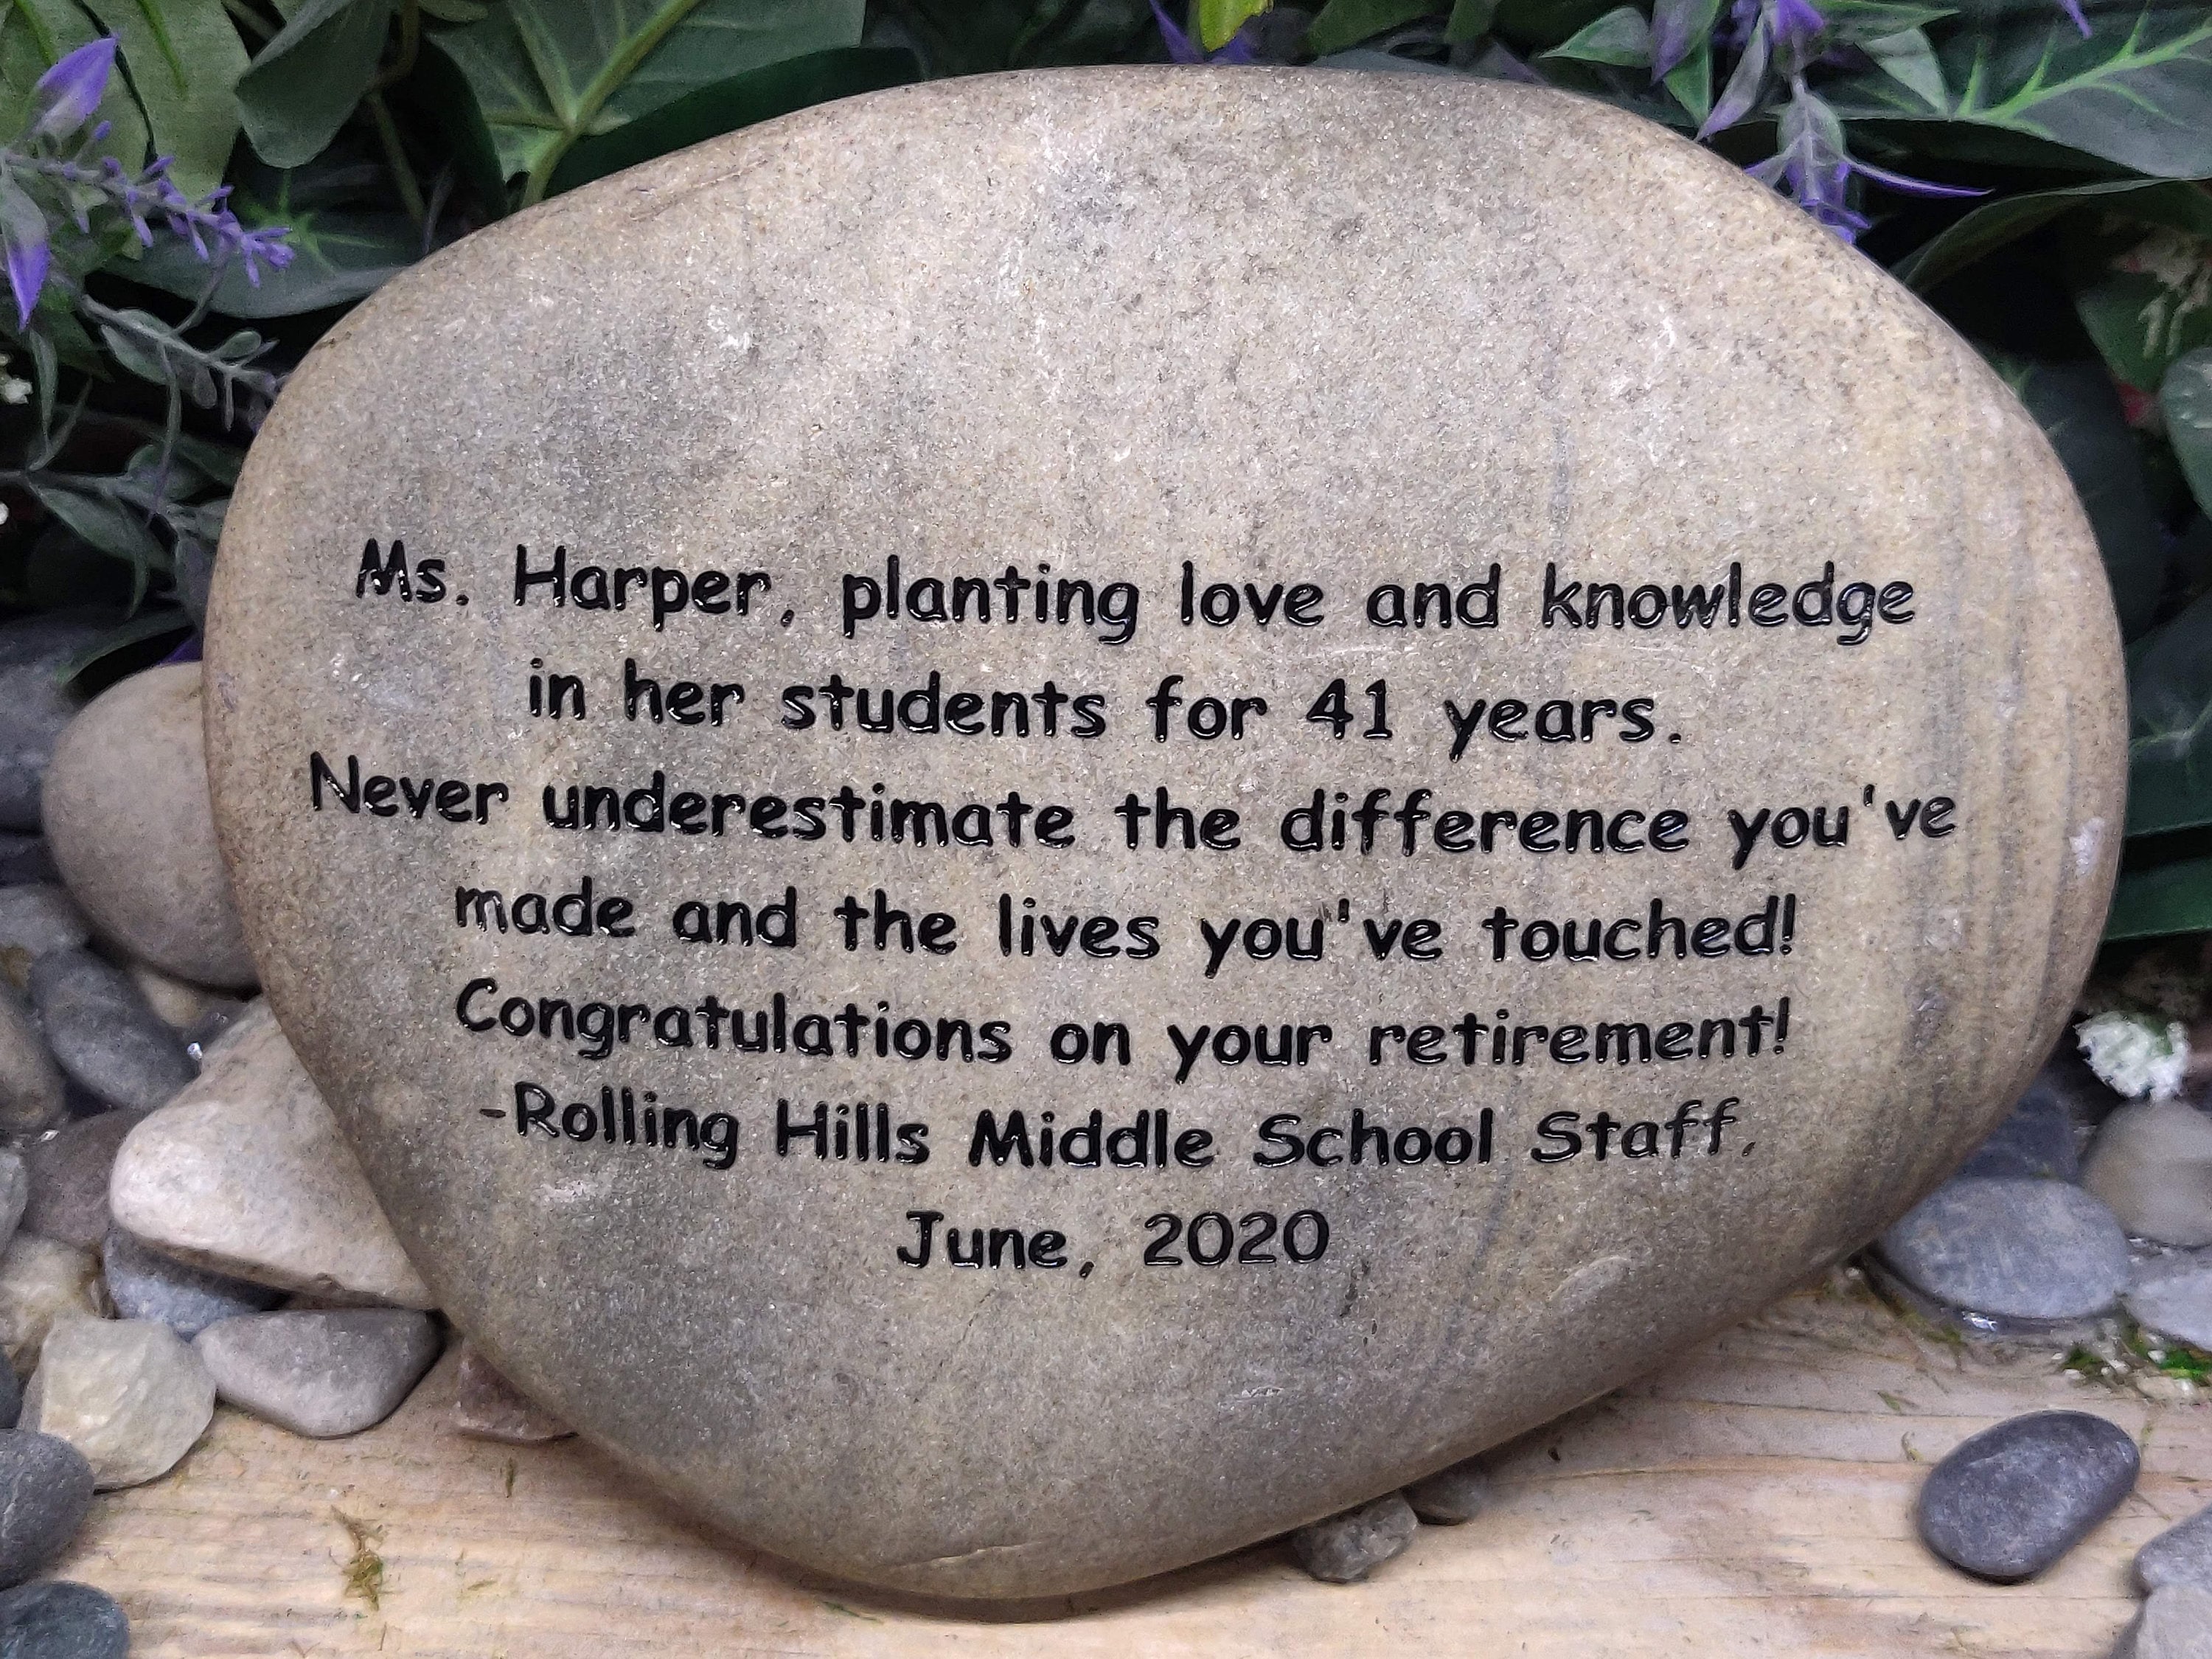 Ms. Harper, planting love and knowledge
in her students for 41 years.
Never underestimate the difference you've
made and the lives you've touched!
Congratulations on your retirement!
-Rolling Hills Middle School Staff,
June, 2020